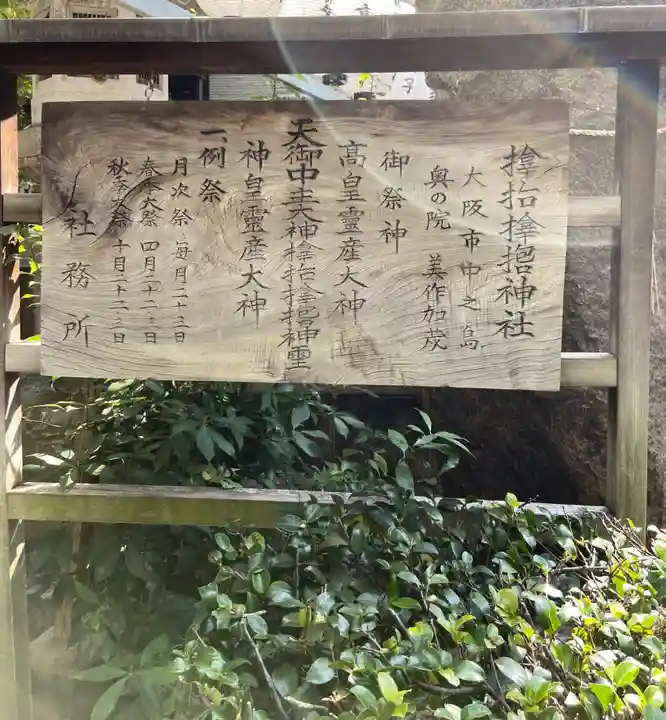 大阪市中之島
奥の院 美作加茂
御祭神
高皇靈産大神
天御中主大神
神皇靈産大神
一、例祭
月次祭 毎月二十三日
春季大祭 四月二十二日
秋季大祭 十月二十二日
社務所